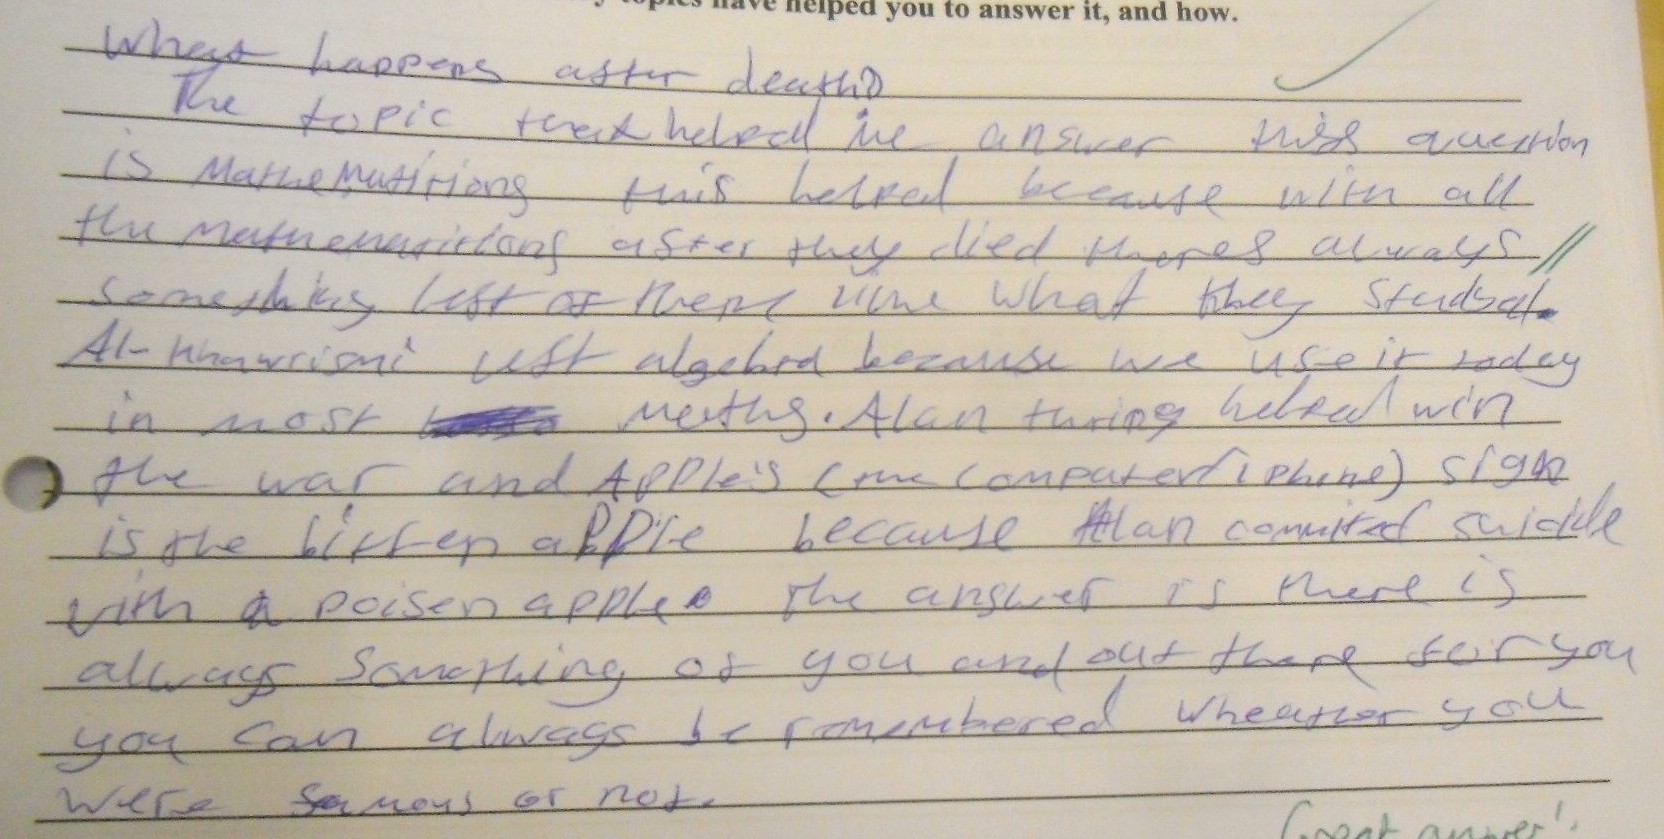 topics have helped you to answer it, and how.
What happens after death?
The topic that helped me answer this question
is Mathematitions this helped because with all
the mathematitions after they died theres always
something left of them like what they studied.
Al-Khawrismi left algebra because we use it today
in most maths. Alan turing helped win
the war and Apple's (the computer/iphone) sign
is the bitten apple because Alan commited suicide
with a poisen apple. The answer is there is
always something of you and out there for you
you can always be remembered wheather you
were famous or not.
Great answer!